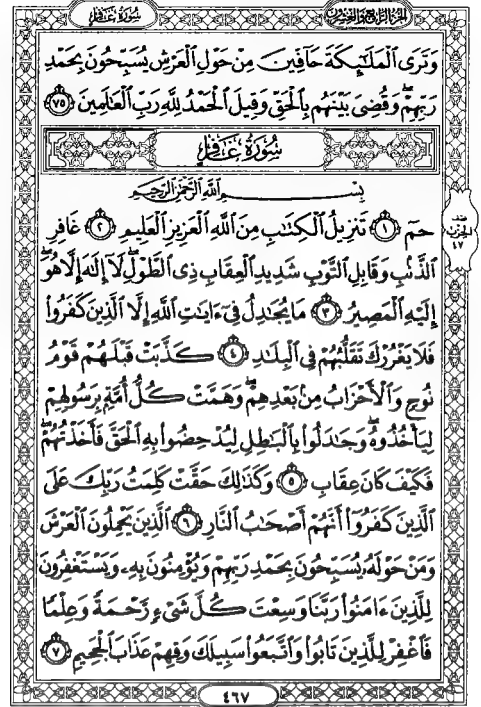 سُورَةُ غَافِرٍ الجُزْءُ الرَّابِعُ وَالعِشْرُونَ
وَتَرَى ٱلْمَلَـٰٓئِكَةَ حَآفِّينَ مِنْ حَوْلِ ٱلْعَرْشِ يُسَبِّحُونَ بِحَمْدِ
رَبِّهِمْ ۖ وَقُضِىَ بَيْنَهُم بِٱلْحَقِّ وَقِيلَ ٱلْحَمْدُ لِلَّهِ رَبِّ ٱلْعَـٰلَمِينَ ٧٥
سُورَةُ غَافِرٍ
بِسْمِ ٱللَّهِ ٱلرَّحْمَـٰنِ ٱلرَّحِيمِ
حمٓ ١ تَنزِيلُ ٱلْكِتَـٰبِ مِنَ ٱللَّهِ ٱلْعَزِيزِ ٱلْعَلِيمِ ٢ غَافِرِ
ٱلذَّنۢبِ وَقَابِلِ ٱلتَّوْبِ شَدِيدِ ٱلْعِقَابِ ذِى ٱلطَّوْلِ ۖ لَآ إِلَـٰهَ إِلَّا هُوَ ۖ
إِلَيْهِ ٱلْمَصِيرُ ٣ مَا يُجَـٰدِلُ فِىٓ ءَايَـٰتِ ٱللَّهِ إِلَّا ٱلَّذِينَ كَفَرُوا۟
فَلَا يَغْرُرْكَ تَقَلُّبُهُمْ فِى ٱلْبِلَـٰدِ ٤ كَذَّبَتْ قَبْلَهُمْ قَوْمُ
نُوحٍ وَٱلْأَحْزَابُ مِنۢ بَعْدِهِمْ ۖ وَهَمَّتْ كُلُّ أُمَّةٍۭ بِرَسُولِهِمْ
لِيَأْخُذُوهُ ۖ وَجَـٰدَلُوا۟ بِٱلْبَـٰطِلِ لِيُدْحِضُوا۟ بِهِ ٱلْحَقَّ فَأَخَذْتُهُمْ ۖ
فَكَيْفَ كَانَ عِقَابِ ٥ وَكَذَٰلِكَ حَقَّتْ كَلِمَتُ رَبِّكَ عَلَى
ٱلَّذِينَ كَفَرُوٓا۟ أَنَّهُمْ أَصْحَـٰبُ ٱلنَّارِ ٦ ٱلَّذِينَ يَحْمِلُونَ ٱلْعَرْشَ
وَمَنْ حَوْلَهُۥ يُسَبِّحُونَ بِحَمْدِ رَبِّهِمْ وَيُؤْمِنُونَ بِهِۦ وَيَسْتَغْفِرُونَ
لِلَّذِينَ ءَامَنُوا۟ رَبَّنَا وَسِعْتَ كُلَّ شَىْءٍ رَّحْمَةً وَعِلْمًا
فَٱغْفِرْ لِلَّذِينَ تَابُوا۟ وَٱتَّبَعُوا۟ سَبِيلَكَ وَقِهِمْ عَذَابَ ٱلْجَحِيمِ ٧
نصف
الحزب
٤٧
٤٦٧